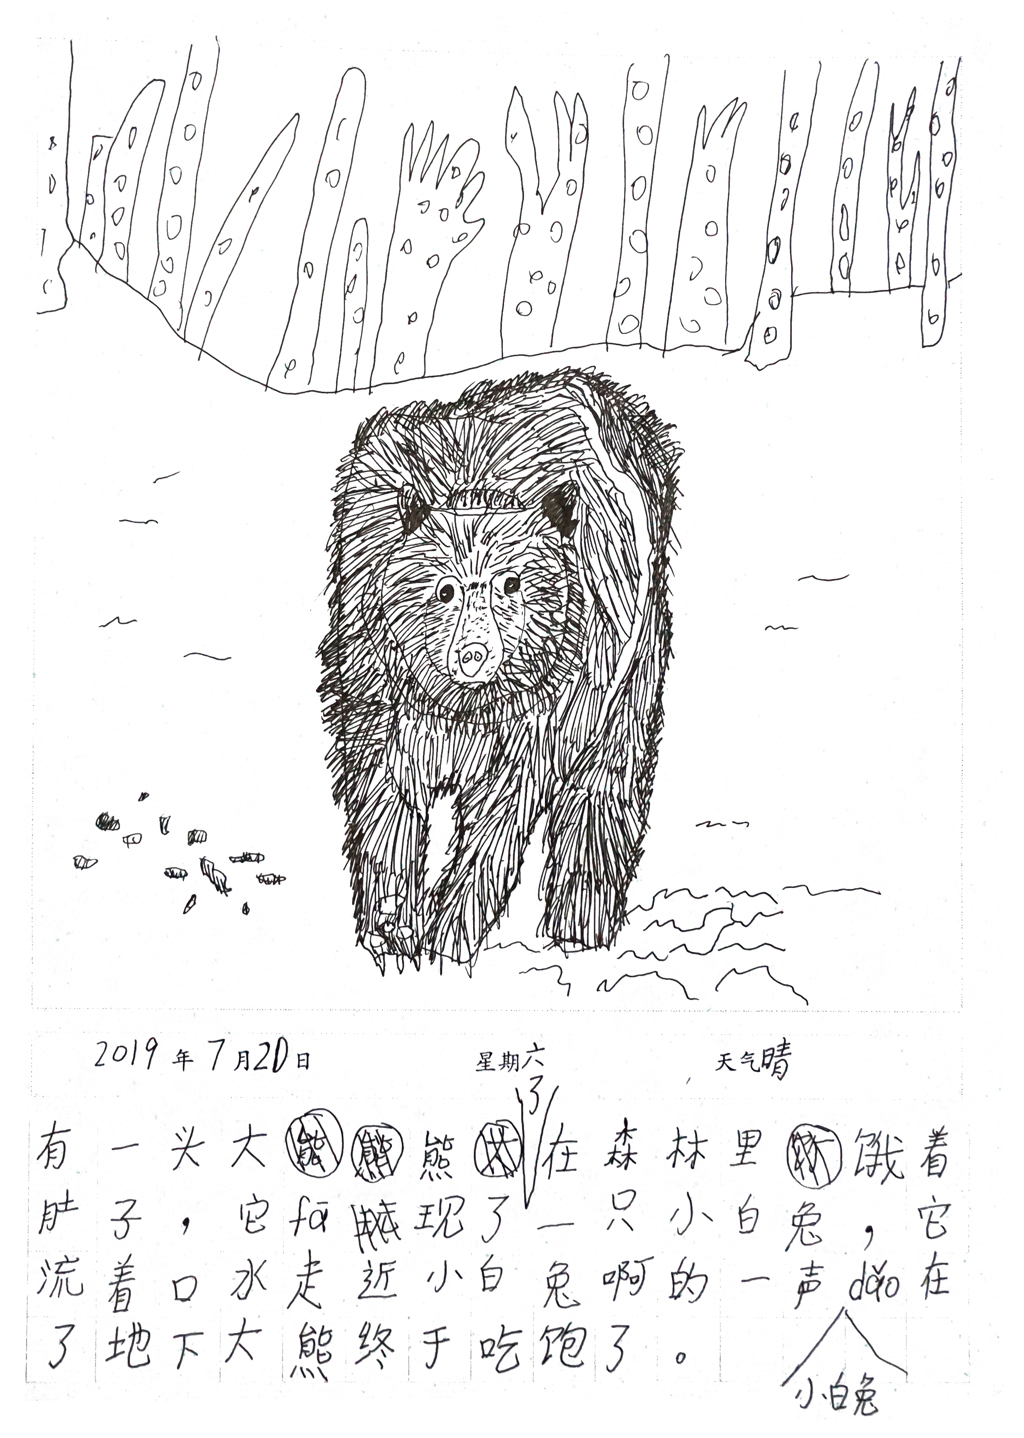 2019年7月20日 星期六 天气晴
了
有一头大熊在森林里饿着
肚子，它fā现了一只小白兔，它
流着口水走近小白兔啊的一声dǎo在
了地下大熊终于吃饱了。
小白兔